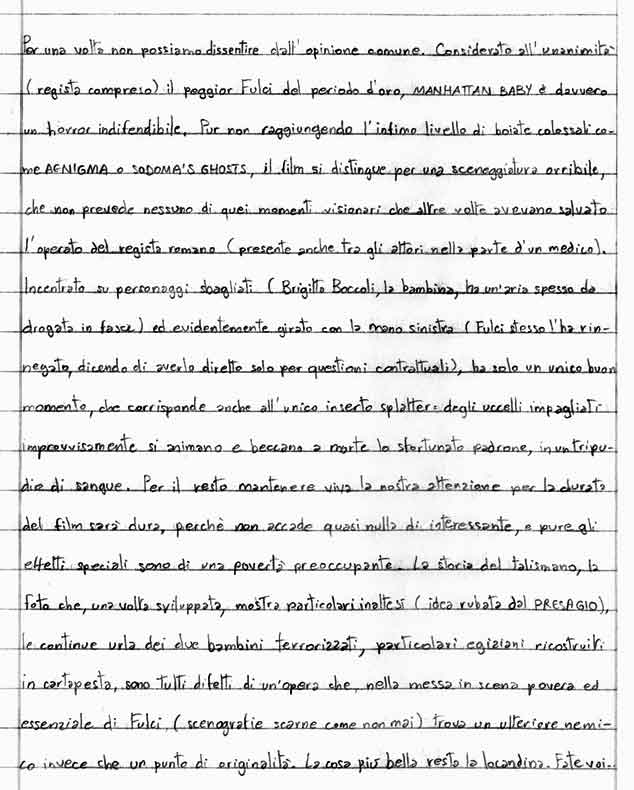 Per una volta non possiamo dissentire dall'opinione comune. Considerato all'unanimità
(regista compreso) il peggior Fulci del periodo d'oro, MANHATTAN BABY è davvero
un horror indifendibile. Pur non raggiungendo l'infimo livello di boiate colossali co-
me AENIGMA o SODOMA'S GHOSTS, il film si distingue per una sceneggiatura orribile,
che non prevede nessuno di quei momenti visionari che altre volte avevano salvato
l'operato del regista romano (presente anche tra gli attori nella parte d'un medico).
Incentrato su personaggi sbagliati (Brigitta Boccoli, la bambina, ha un'aria spesso da
drogata in fasce) ed evidentemente girato con la mano sinistra (Fulci stesso l'ha rin-
negato, dicendo di averlo diretto solo per questioni contrattuali), ha solo un unico buon
momento, che corrisponde anche all'unico inserto splatter: degli uccelli impagliati
improvvisamente si animano e beccano a morte lo sfortunato padrone, in un tripu-
dio di sangue. Per il resto mantenere viva la nostra attenzione per la durata
del film sarà dura, perchè non accade quasi nulla di interessante, e pure gli
effetti speciali sono di una povertà preoccupante. La storia del talismano, la
foto che, una volta sviluppata, mostra particolari inattesi (idea rubata dal PRESAGIO),
le continue urla dei due bambini terrorizzati, particolari egiziani ricostruiti
in cartapesta, sono tutti difetti di un'opera che, nella messa in scena povera ed
essenziale di Fulci, (scenografie scarne come non mai) trova un ulteriore nemi-
co invece che un punto di originalità. La cosa più bella resta la locandina. Fate voi..